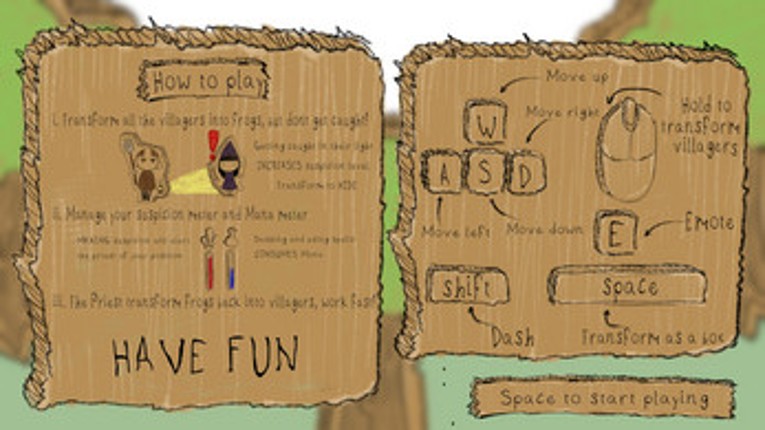 How to play
i. Transform all the villagers into frogs, but dont get caught!
Getting caught in their sight
INCREASES suspicion level
Transform to HIDE
ii. Manage your suspicion meter and Mana meter
iii. The Priest transform frogs back into villagers, work fast!
HAVE FUN
Move up
Move right
Hold to
transform
villagers
W
A S D
Move left
Move down
E
Emote
shift
space
Dash
Transform as a box
Space to start playing